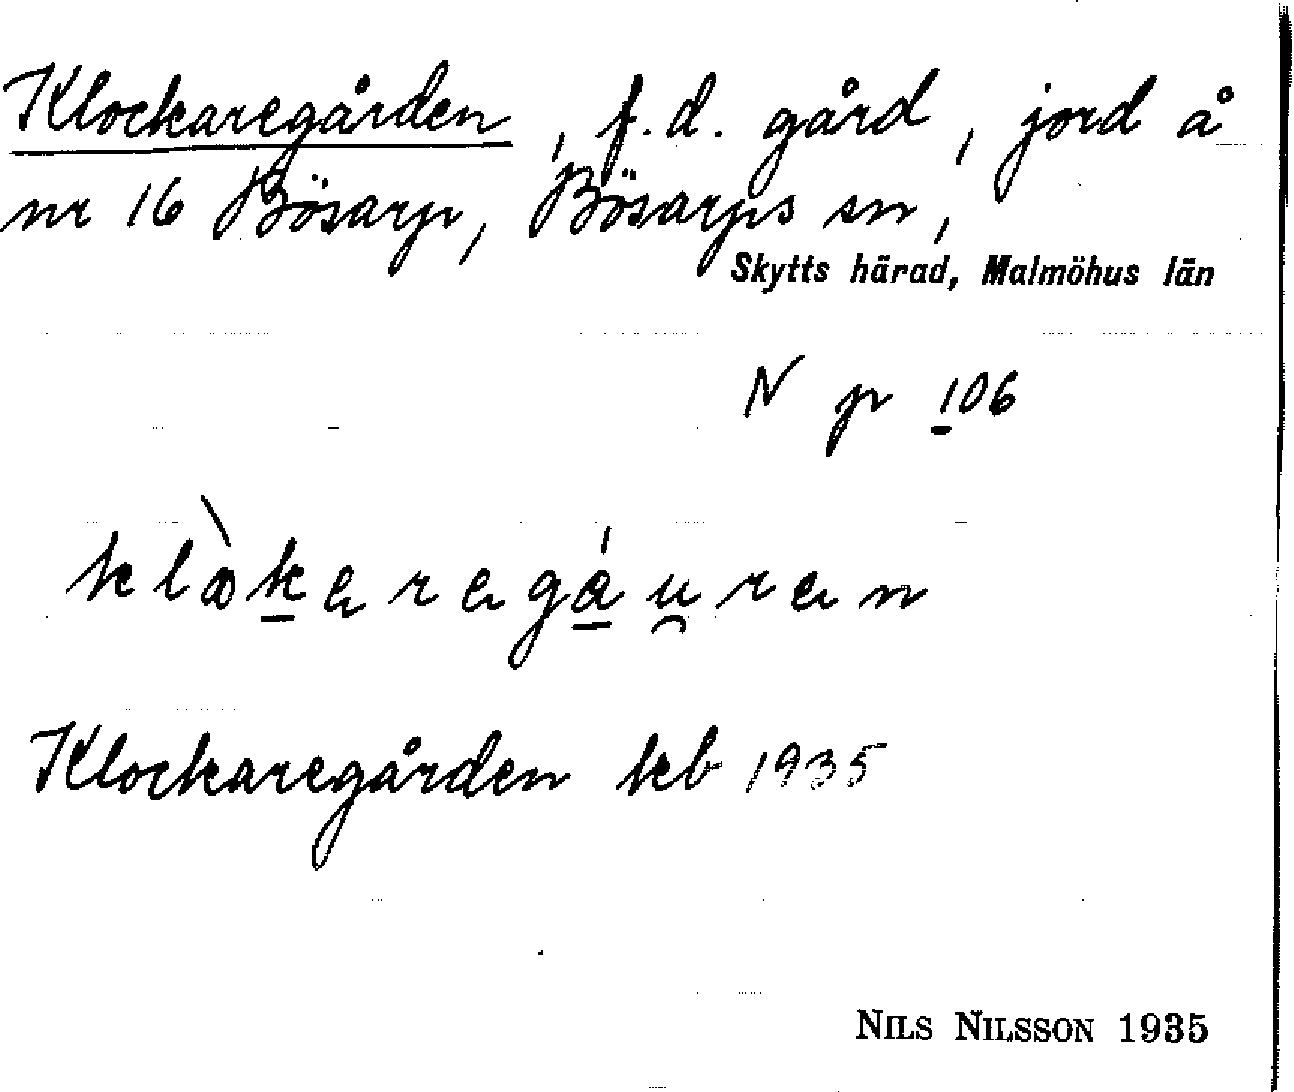 Klockaregården, f.d. gård, jord å
nr 16 Bösarp, Bösarps sn,
Skytts härad, Malmöhus län
N p 106
Klockaregården kb 1935
NILS NILSSON 1935